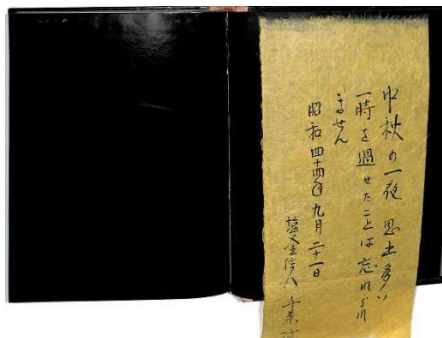 中秋の一夜 思出多い
一時を過せたことは忘れられ
ません
昭和四十四年九月二十一日
千葉